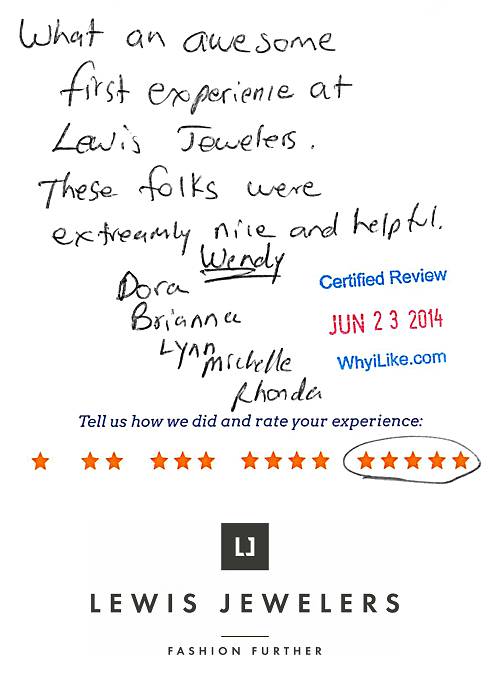 What an awesome
first experience at
Lewis Jewelers.
These folks were
extreamly nice and helpful.
Wendy
Dora
Brianna
Lynn
Michelle
Rhonda
Certified Review
JUN 23 2014
WhyiLike.com
Tell us how we did and rate your experience:
LJ
LEWIS JEWELERS
FASHION FURTHER